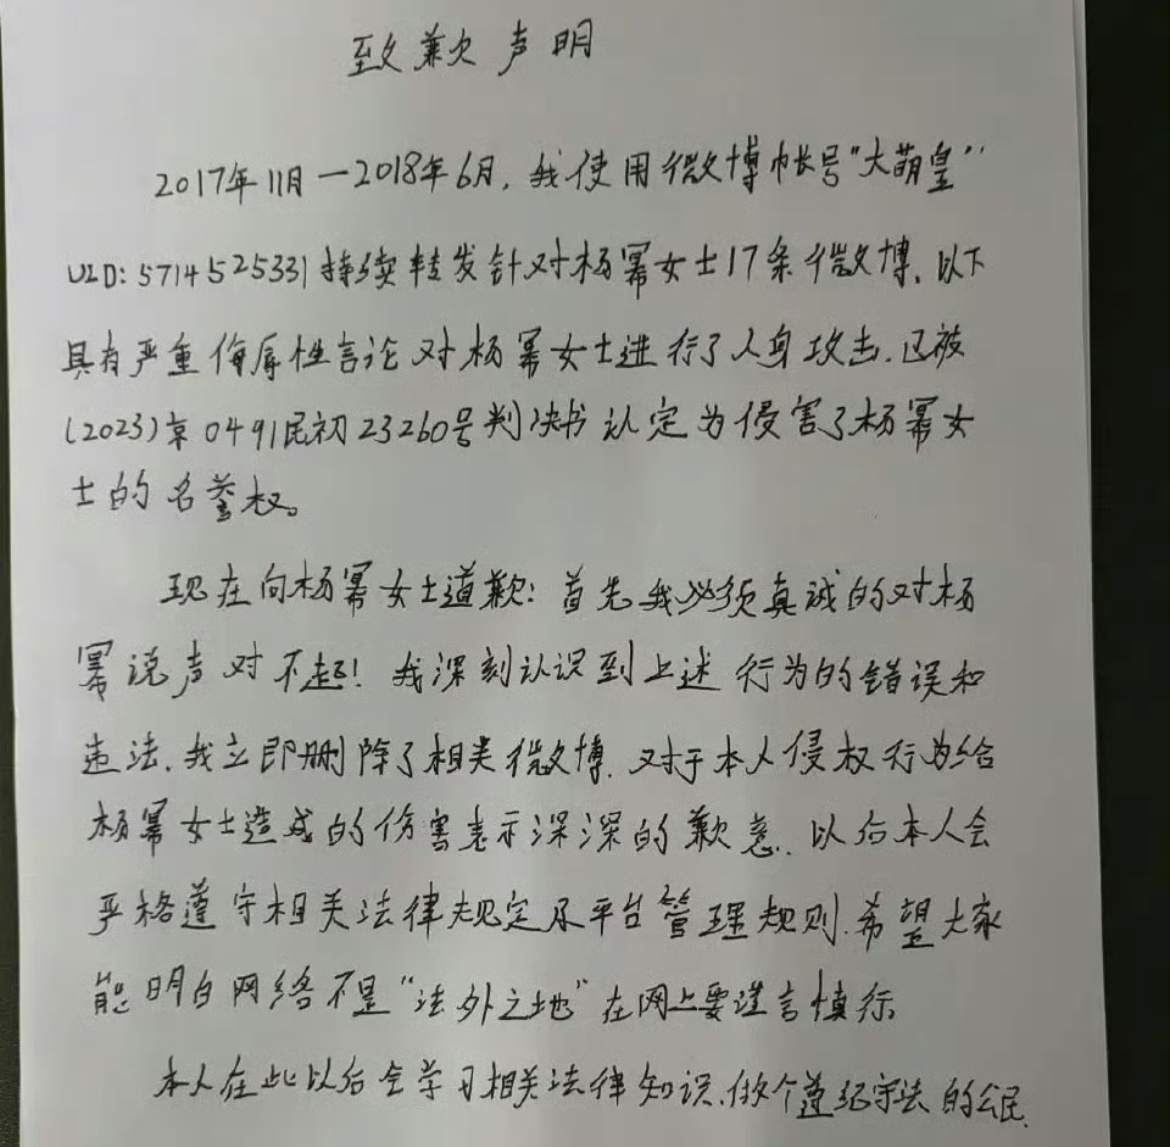 致歉声明
2017年11月—2018年6月,我使用微博帐号"大萌皇"
UID:5714525331持续转发针对杨幂女士17条微博,以下
具有严重侮辱性言论对杨幂女士进行了人身攻击.已被
(2023)京0491民初23260号判决书认定为侵害了杨幂女
士的名誉权。
现在向杨幂女士道歉:首先我必须真诚的对杨
幂说声对不起!我深刻认识到上述行为的错误和
违法.我立即删除了相关微博.对于本人侵权行为给
杨幂女士造成的伤害表示深深的歉意.以后本人会
严格遵守相关法律规定及平台管理规则.希望大家
能明白网络不是"法外之地"在网上要谨言慎行
本人在此以后会学习相关法律知识.做个遵纪守法的公民.